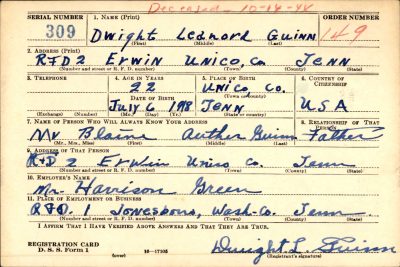 Deceased - 10-14-44
SERIAL NUMBER 1. NAME (Print) ORDER NUMBER
309 Dwight Leanord Guinn 149
(First) (Middle) (Last)
2. ADDRESS (Print)
RFD 2 Erwin Unico, Co Tenn
(Number and street or R. F. D. number) (Town) (County) (State)
3. TELEPHONE 4. AGE IN YEARS 5. PLACE OF BIRTH 6. COUNTRY OF CITIZENSHIP
22 Unico, Co.
DATE OF BIRTH (Town or county)
July 6 Tenn USA
(Exchange) (Number) (Mo.) (Day) (Yr.) (State or country)
7. NAME OF PERSON WHO WILL ALWAYS KNOW YOUR ADDRESS 8. RELATIONSHIP OF THAT PERSON
Mr Blaine Auther Guinn Father
(Mr., Mrs., Miss) (First) (Middle) (Last)
9. ADDRESS OF THAT PERSON
RFD 2 Erwin Unico Co. Tenn
(Number and street or R. F. D. number) (Town) (County) (State)
10. EMPLOYER'S NAME
Mr. Harrison Green
11. PLACE OF EMPLOYMENT OR BUSINESS
RFD 1 Jonesboro, Wash-Co. Tenn
(Number and street or R. F. D. number) (Town) (County) (State)
I AFFIRM THAT I HAVE VERIFIED ABOVE ANSWERS AND THAT THEY ARE TRUE.
REGISTRATION CARD
D. S. S. Form 1 (over) 16-17105 Dwight L. Guinn
(Registrant's signature)